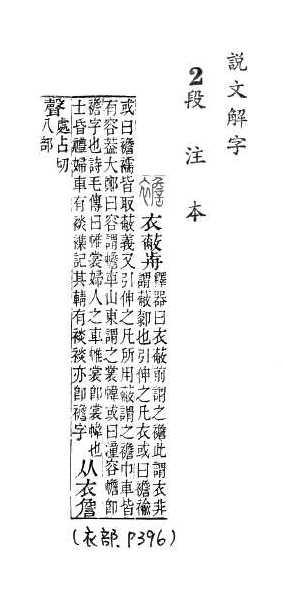 説文解字
2段注本
襜 衣蔽歬 釋器曰衣蔽前謂之襜此謂衣非
謂蔽厀也引伸之凡衣或曰襜褕
或曰襜襦皆取蔽義又引伸之凡所用蔽謂之襜巾車皆
有容葢大鄭曰容謂幨車山東謂之裳幃或曰潼容幨卽
襜字也詩毛傳曰帷裳婦人之車帷裳卽裳幃也
士昏禮婦車有裧襍記其輤有裧裧亦卽襜字 从衣詹
聲 處占切
八部
(衣部.P396)